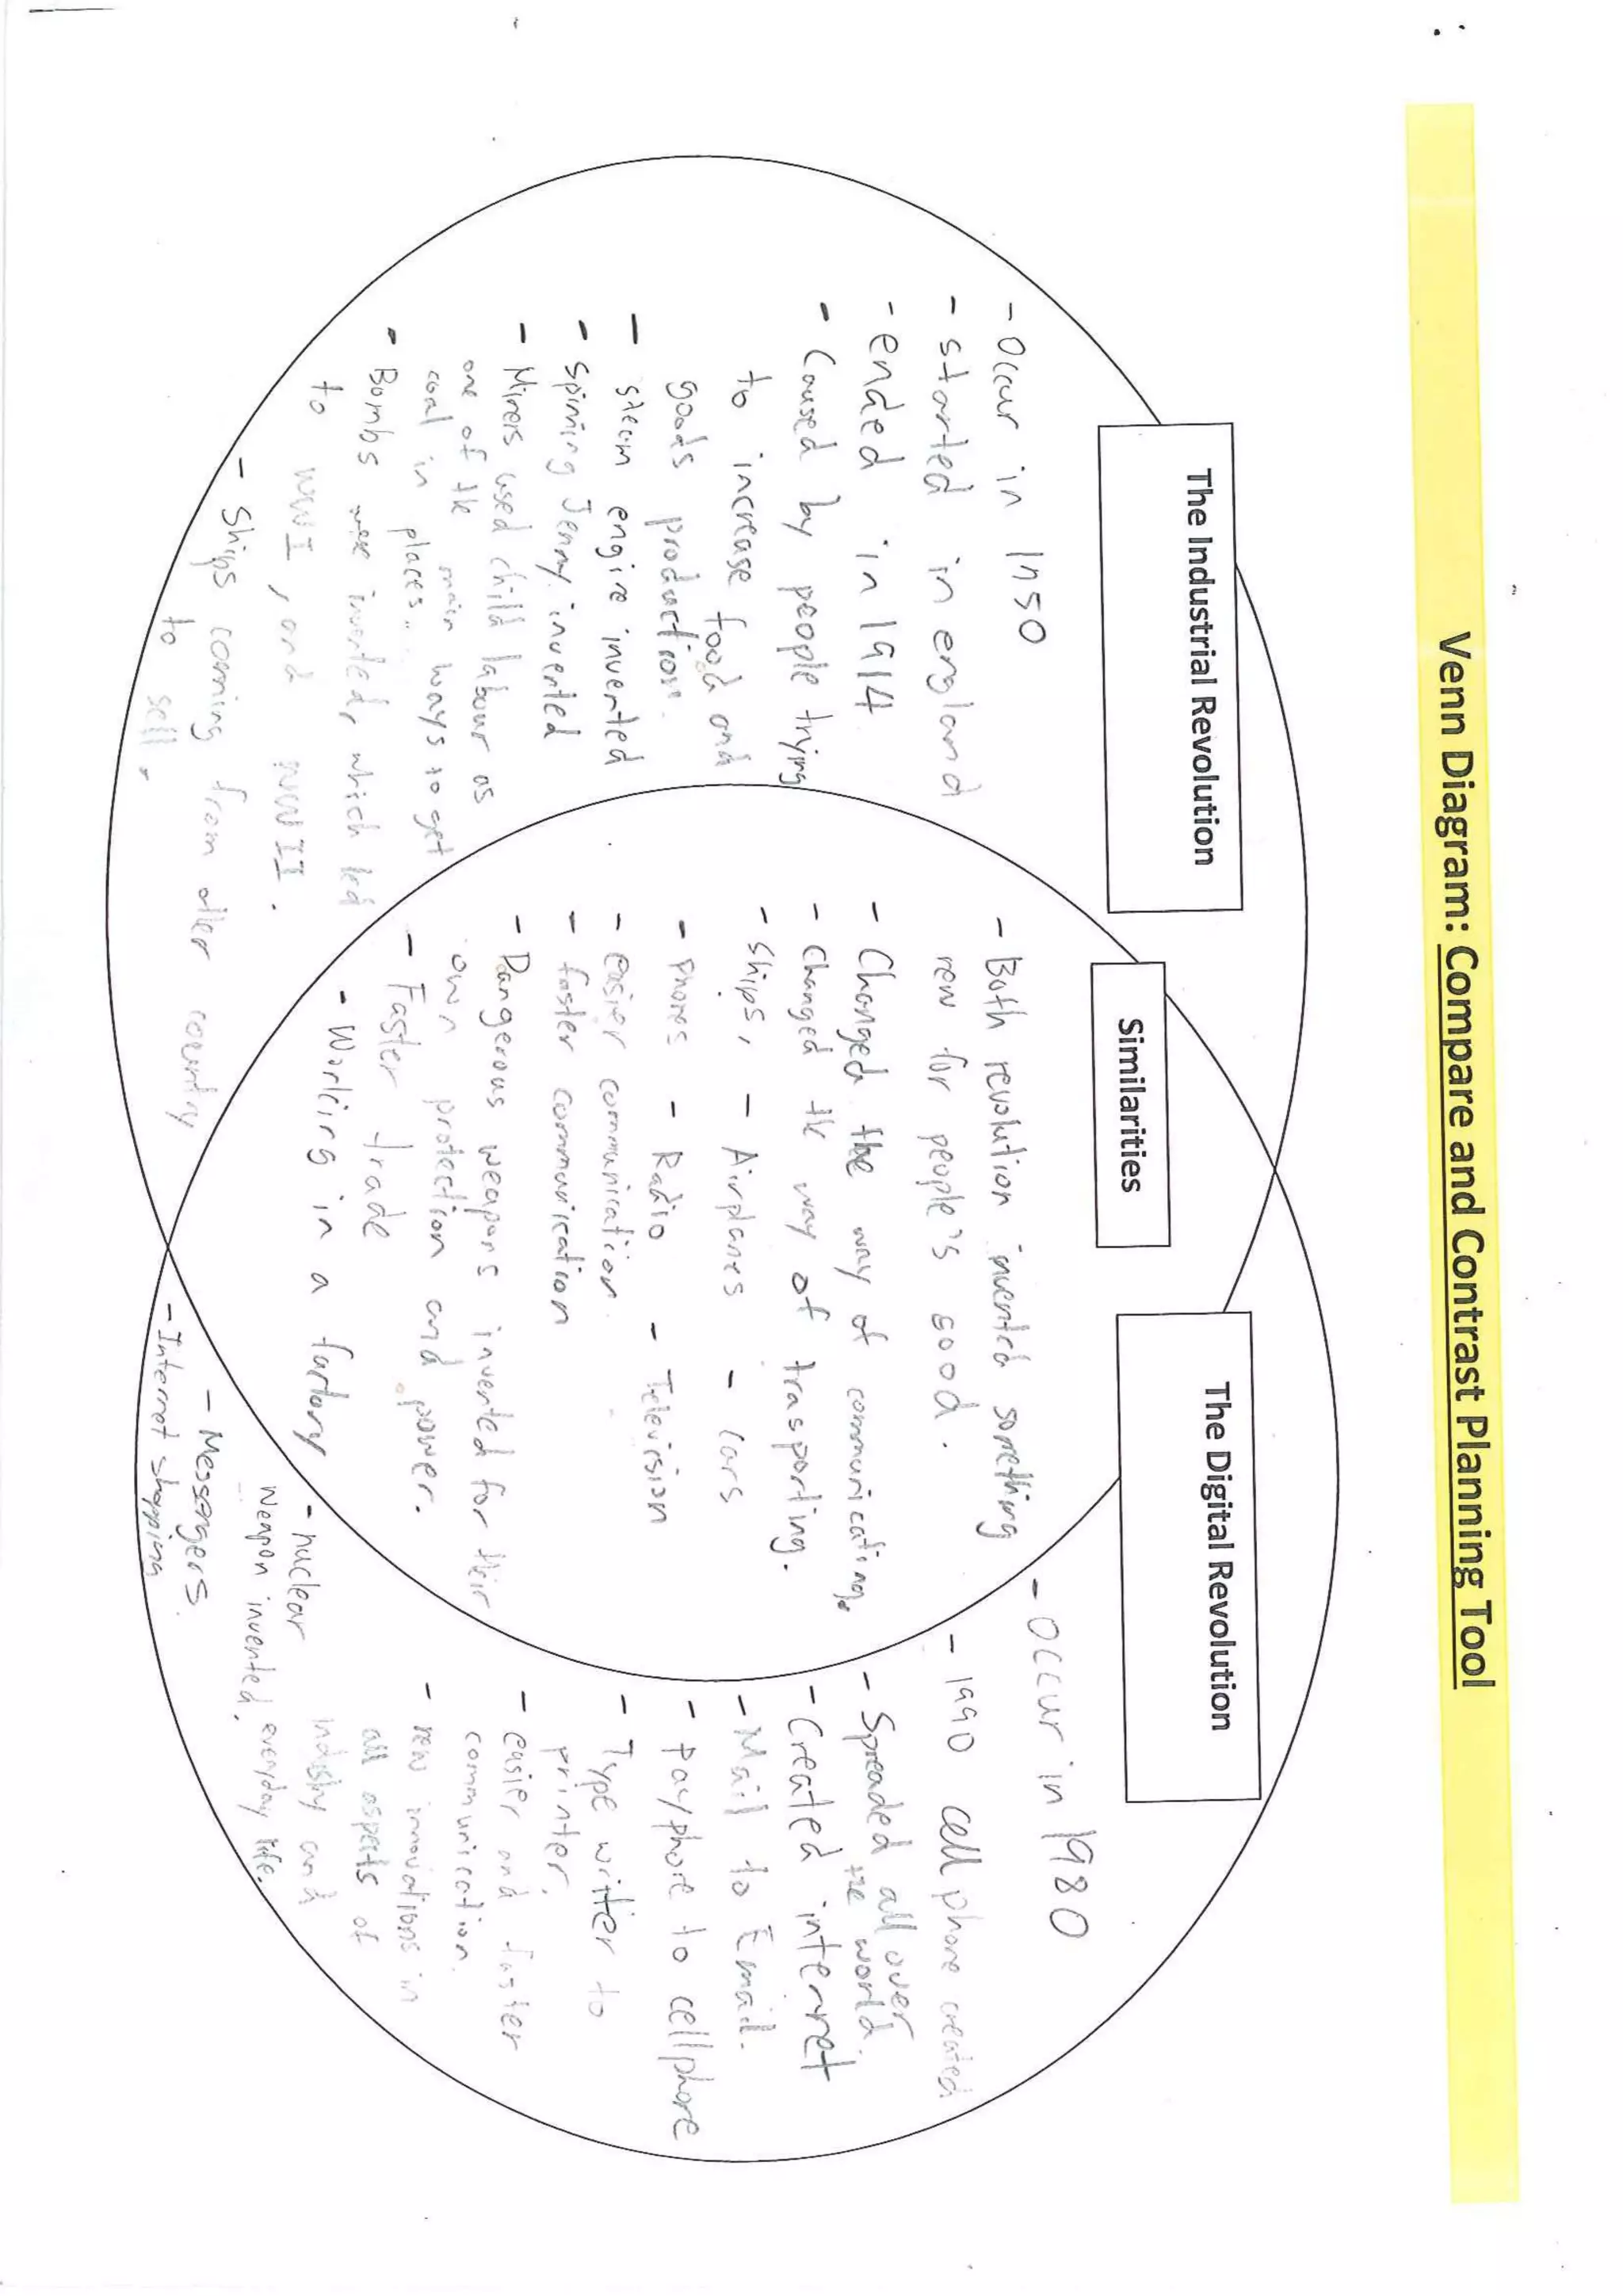 Venn Diagram: Compare and Contrast Planning Tool
The Industrial Revolution
- Occur in 1750
- started in england
- ended in 1914
- Caused by people trying
to increase food and
goods production.
- steam engine invented
- Spinning Jenny invented
- Miners used child labour as
one of the main ways to get
coal in places..
- Bombs were invented, which led
to WWI, and WWII.
- Ships coming from other country
to sell.
Similarities
- Both revolution invented something
new for people's good.
- Changed the way of communicating.
- Changed the way of trasporting.
- Ships, - Airplanes - Cars
- Phones - Radio - Television
- easier communication.
- faster communication
- Dangerous weapons invented for their
own protection and power.
- Faster trade
- Working in a factory
The Digital Revolution
- Occur in 1980
- 1990 cell phone created
- Spreaded all over
the world.
- Created internet
- Mail to Email.
- Payphone to cellphone
- Type writter to
printer.
- easier and faster
communication.
- new innovations in
all aspects of
industry and
everyday life.
- nuclear
weapon invented.
- Messengers.
- Internet shopping